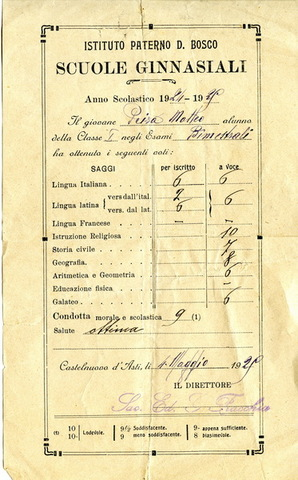 ISTITUTO PATERNO D. BOSCO
SCUOLE GINNASIALI
Anno Scolastico 19 - 19
Il giovane Matteo alunno
della Classe I negli Esami Bimestrali
ha ottenuto i seguenti voti:
SAGGI per iscritto a voce
Lingua Italiana 6 6
Lingua latina { vers dall'ital. 2 } 6
vers. dal lat. 6
Lingua Francese — —
Istruzione Religiosa 10
Storia civile 7
Geografia 8
Aritmetica e Geometria 6
Educazione fisica —
Galateo 6
Condotta morale e scolastica 9 (1)
Salute ottima
Castelnuovo d'Asti, li Maggio 19
IL DIRETTORE
Sac.
(1) 10 10- Lodevole. 9½ Soddisfacente. 9 meno soddisfacente. 9- appena sufficiente. 8 biasimevole.